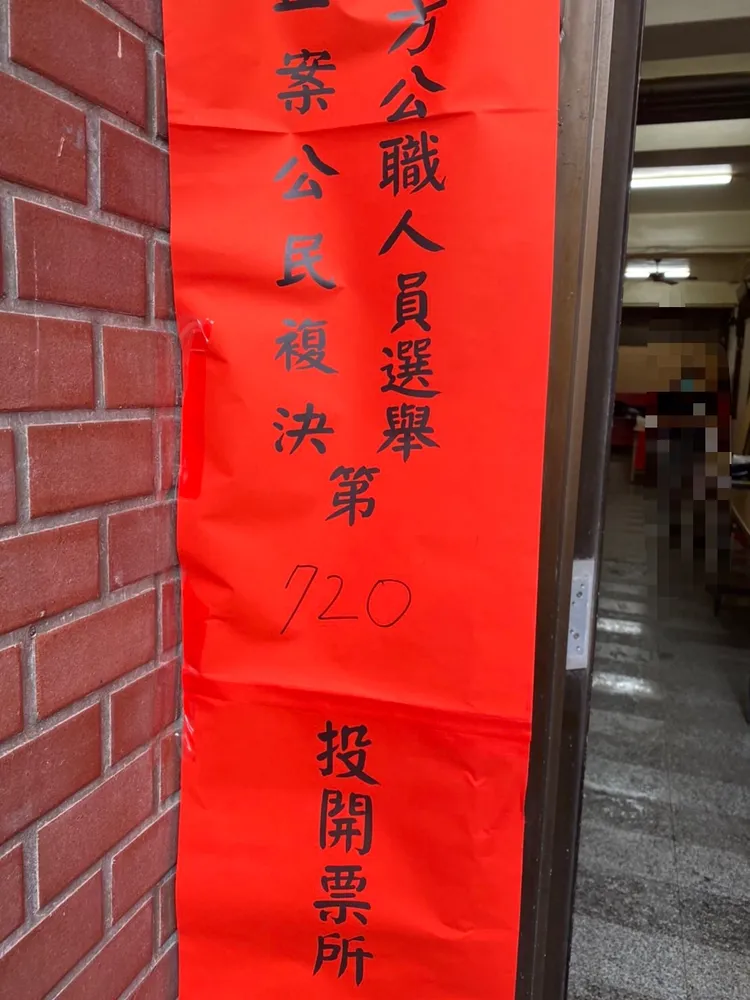 方公職人員選舉
案公民複決
第
720
投開票所